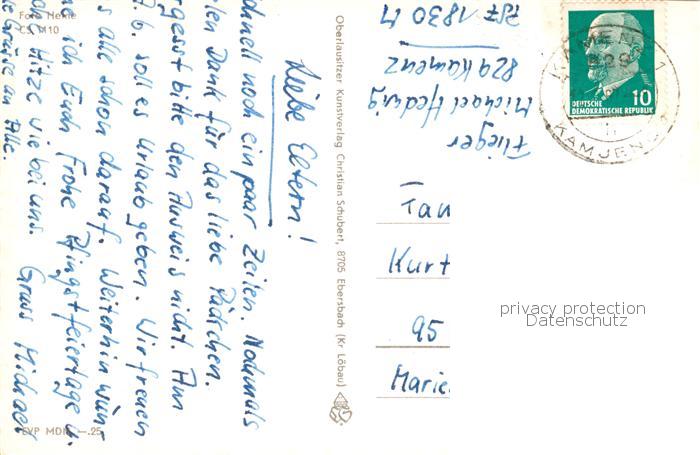 Foto Heine
CS M10
Liebe Eltern!
schnell noch ein paar Zeilen. Nochmals
vielen Dank für das liebe Päckchen.
Vergesst bitte den Ausweis nicht. Am
7.6. soll es Urlaub geben. Wir freuen
uns alle schon darauf. Weiterhin wün-
ich Euch Frohe Pfingstfeiertage u.
Hitze wie bei uns. Gruss Michael
Grüsse an Alle.
EVP MDN —.25
Oberlausitzer Kunstverlag Christian Schubert, 8705 Ebersbach (Kr Löbau)
Flieger
Michael Hedwig
829 Kamenz
PSF 1830 M
DEUTSCHE
DEMOKRATISCHE REPUBLIK
10
KAMENZ 1
829
KAMJENC
Fam
Kurt
95
Marie
privacy protection
Datenschutz